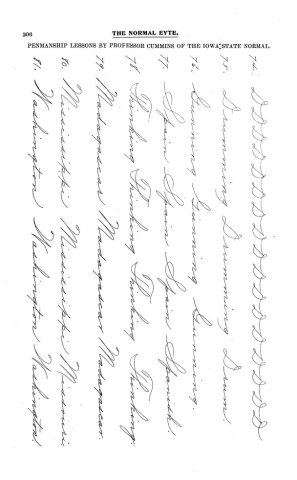 206 THE NORMAL EYTE,
PENMANSHIP LESSONS BY PROFESSOR CUMMINS OF THE IOWA STATE NORMAL.
74. D D D D D D D D D D D
75. Drumming Drumming Drum
76. Lumming Lumming Lumming.
77. Spain Spain Spain Spanish.
78. Thinking Thinking Thinking Thinking.
79. Madagascar Madagascar Madagascar.
80. Mississippi. Mississippi. Missouri.
81. Washington Washington Washington.